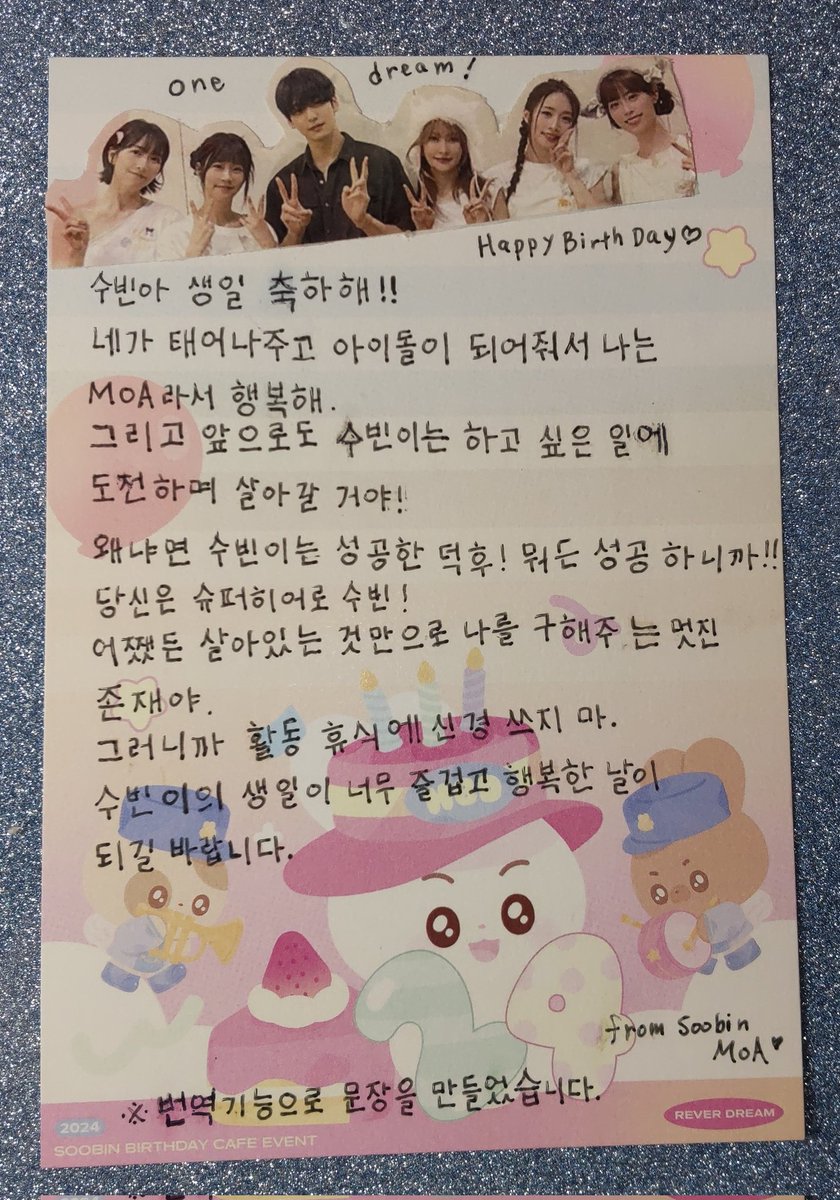 one dream!
Happy Birth Day♡
수빈아 생일 축하해!!
네가 태어나주고 아이돌이 되어줘서 나는
MOA라서 행복해.
그리고 앞으로도 수빈이는 하고 싶은 일에
도전하며 살아갈 거야!
왜냐면 수빈이는 성공한 덕후! 뭐든 성공 하니까!!
당신은 슈퍼히어로 수빈!
어쨌든 살아있는 것만으로 나를 구해주 는 멋진
존재야.
그러니까 활동 휴식에 신경 쓰지 마.
수빈이의 생일이 너무 즐겁고 행복한 날이
되길 바랍니다.
29
from Soobin
MOA♥
※ 번역기능으로 문장을 만들었습니다.
2024
REVER DREAM
SOOBIN BIRTHDAY CAFE EVENT